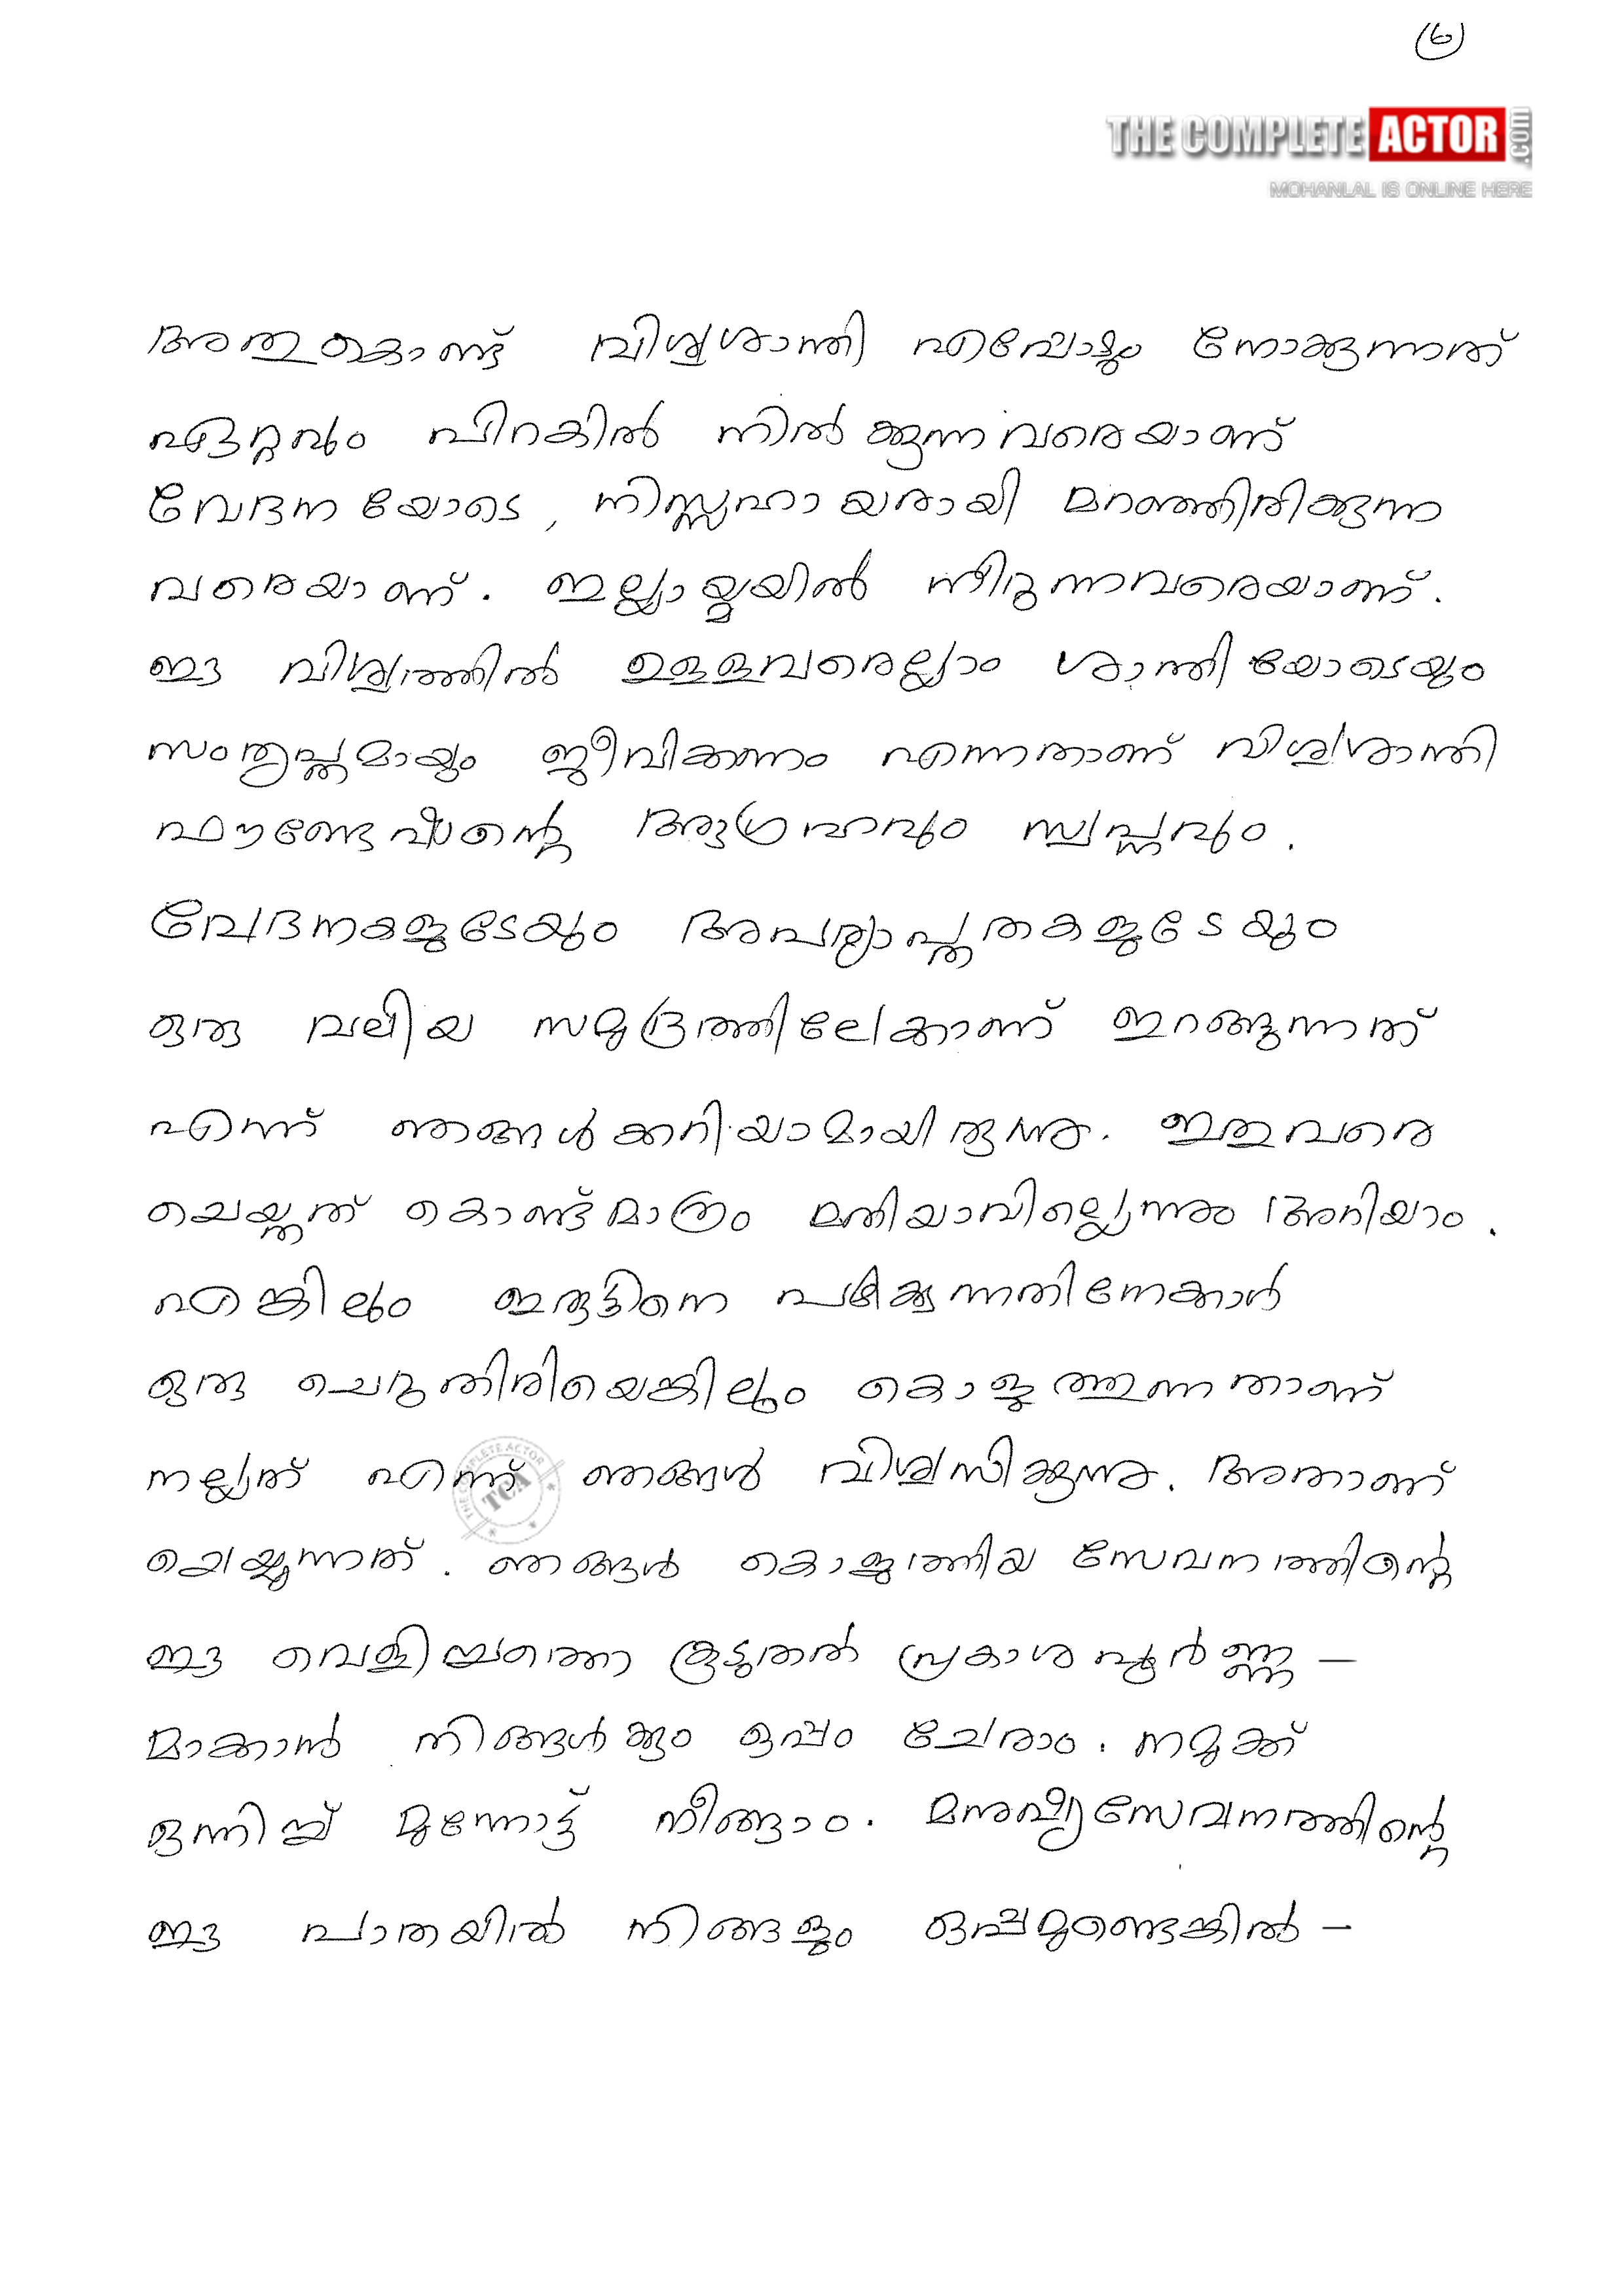 6
THE COMPLETE ACTOR .com
MOHANLAL IS ONLINE HERE
അതുകൊണ്ട് വിശ്വശാന്തി എപ്പോഴും നോക്കുന്നത്
ഏറ്റവും പിറകിൽ നിൽക്കുന്നവരെയാണ്
വേദനയോടെ, നിസ്സഹായരായി മറഞ്ഞിരിക്കുന്ന
വരെയാണ്. ഇല്ലായ്മയിൽ നീറുന്നവരെയാണ്.
ഈ വിശ്വത്തിൽ ഉള്ളവരെല്ലാം ശാന്തിയോടെയും
സംതൃപ്തമായും ജീവിക്കണം എന്നതാണ് വിശ്വശാന്തി
ഫൗണ്ടേഷന്റെ ആഗ്രഹവും സ്വപ്നവും.
വേദനകളുടേയും അപര്യാപ്തതകളുടേയും
ഒരു വലിയ സമുദ്രത്തിലേക്കാണ് ഇറങ്ങുന്നത്
എന്ന് ഞങ്ങൾക്കറിയാമായിരുന്നു. ഇതുവരെ
ചെയ്തത് കൊണ്ട്മാത്രം മതിയാവില്ലെന്നും അറിയാം.
എങ്കിലും ഇരുട്ടിനെ പഴിക്കുന്നതിനേക്കാൾ
ഒരു ചെറുതിരിയെങ്കിലും കൊളുത്തുന്നതാണ്
നല്ലത് എന്ന് ഞങ്ങൾ വിശ്വസിക്കുന്നു. അതാണ്
ചെയ്യുന്നത്. ഞങ്ങൾ കൊളുത്തിയ സേവനത്തിന്റെ
ഈ വെളിച്ചത്തെ കൂടുതൽ പ്രകാശപൂർണ്ണ-
മാക്കാൻ നിങ്ങൾക്കും ഒപ്പം ചേരാം. നമുക്ക്
ഒന്നിച്ച് മുന്നോട്ട് നീങ്ങാം. മനുഷ്യസേവനത്തിന്റെ
ഈ പാതയിൽ നിങ്ങളും ഒപ്പമുണ്ടെങ്കിൽ -
THE COMPLETE ACTOR
TCA